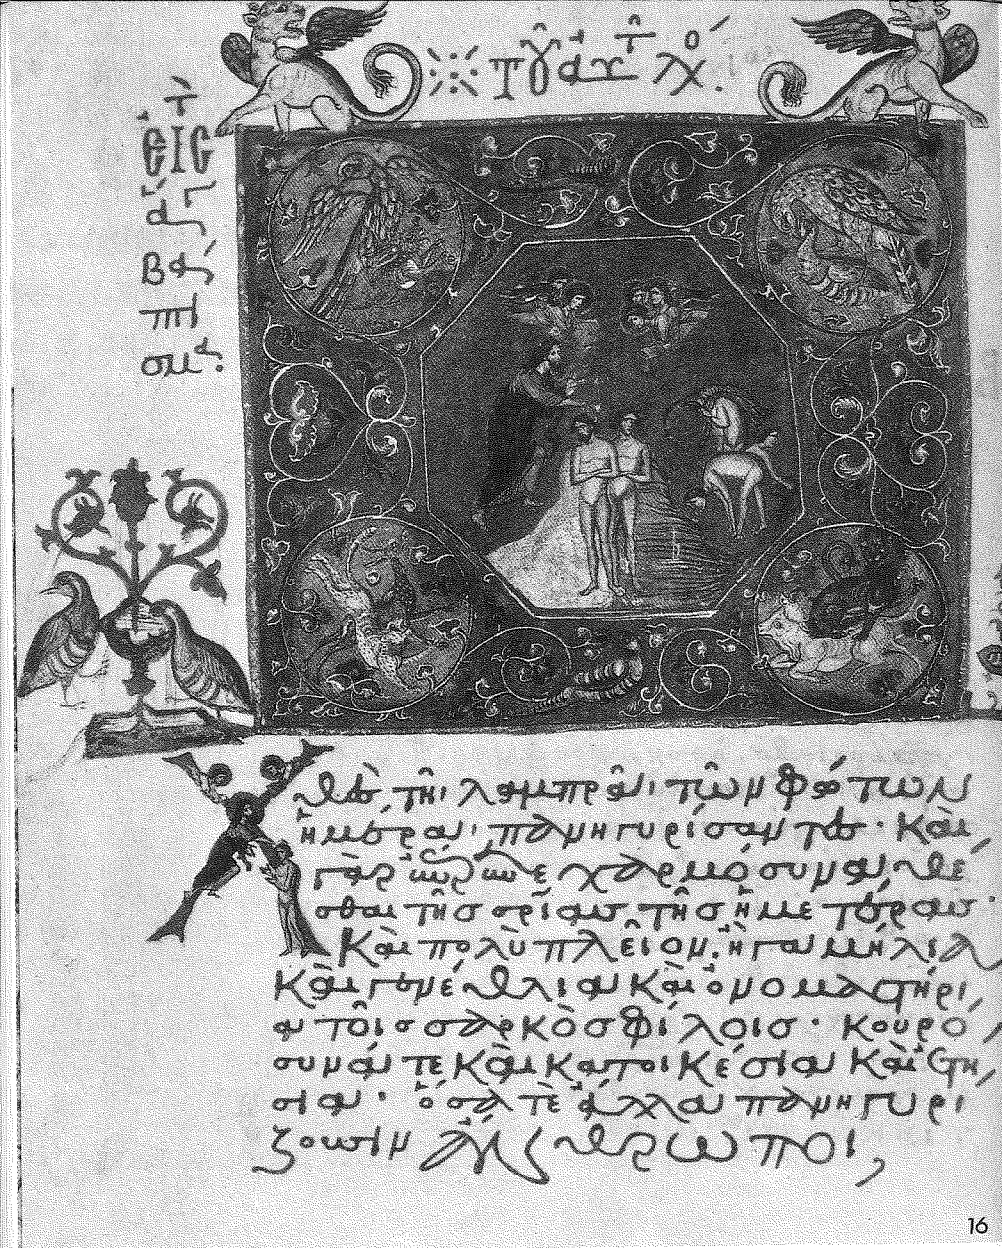 τοῦ αὐτ λο.
εἰς τ
ἁγ
βά
πτι
σμα.
Χθὲς τῇ λαμπρᾷ τῶν φώτων
ἡμέρᾳ πανηγυρίσαντες· καὶ
γὰρ χαρμόσυνα θέ
σθαι τῆς σρίας τῆς ἡμετέρας·
καὶ πολὺ πλεῖον, ἢ γαμήλια
καὶ γενέθλια καὶ ὀνομαστήρι
α τοῖς σαρκὸς φίλοις· κουρό
συνά τε καὶ κατοικέσια καὶ ἐτή
σια· ὅσα τὲ ἄλλα πανηγυρί
ζουσιν ἄνθρωποι,
16